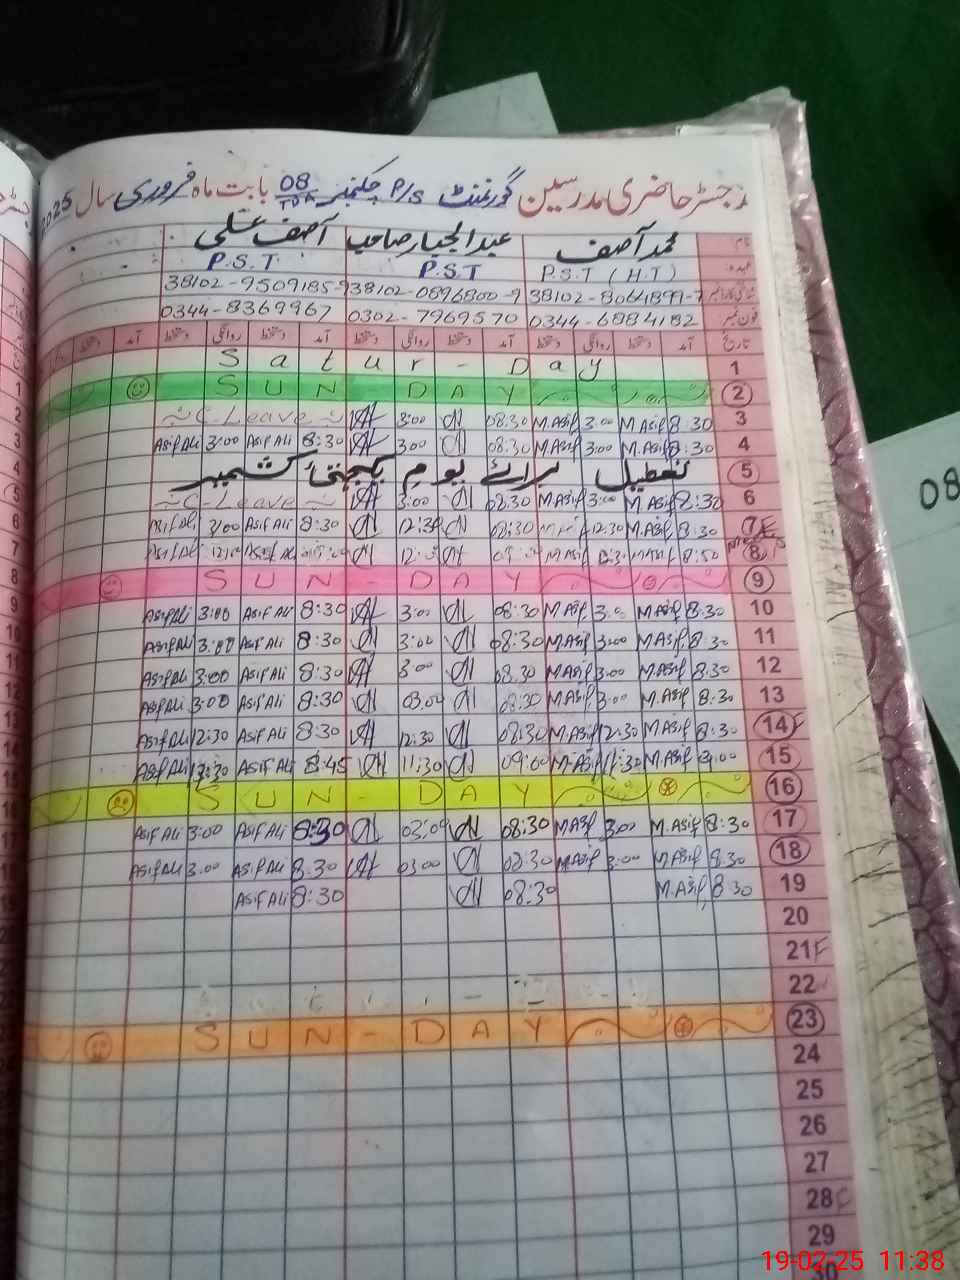 رجسٹر حاضری مدرسین گورنمنٹ P/S چکنمبر 08 بابت ماہ فروری سال 2025
نام محمد آصف عبدالجبار صاحب آصف علی
عہدہ P.S.T (H.T) P.S.T P.S.T
38102-8064899-7 38102-0896800-9 38102-9509185-9
فون نمبر 0344-6884182 0302-7969570 0344-8369967
تاریخ آمد دستخط روانگی دستخط آمد دستخط روانگی دستخط آمد دستخط روانگی دستخط آمد دستخط
1 Satur-Day
2 SUN DAY
3 8.30 M.Asif 3:00 M.Asif 08:30 3:00 C-Leave
4 8.30 M.Asif 3:00 M.Asif 08:30 3:00 8:30 Asif Ali 3:00 Asif Ali
5 تعطیل برائے یوم یکجہتی کشمیر
6 8:30 M.Asif 3:00 M.Asif 08:30 3:00 C-Leave
7 8.30 M.Asif 12:30 08:30 12:30 8:30 Asif Ali 3:00
8 8:50
9 SUN-DAY
10 8.30 M.Asif 3:00 M.Asif 08:30 3:00 8:30 Asif Ali 3:00 Asif Ali
11 8:30 M.Asif 3:00 M.Asif 08:30 3:00 8:30 Asif Ali 3:00 Asif Ali
12 8.30 M.Asif 3:00 M.Asif 08:30 3:00 8:30 Asif Ali 3:00 Asif Ali
13 8.30 M.Asif 3:00 M.Asif 08:30 03:00 8:30 Asif Ali 3:00 Asif Ali
14 F 8.30 M.Asif 12:30 M.Asif 08:30 12:30 8:30 Asif Ali 12:30 Asif Ali
15 9:00 M.Asif 11:30 M.Asif 09:00 11:30 8:45 Asif Ali Asif Ali
16 SUN-DAY
17 8:30 M.Asif 3:00 M.Asif 08:30 03:00 8:30 Asif Ali 3:00 Asif Ali
18 8.30 M.Asif 3:00 M.Asif 08:30 03:00 8.30 Asif Ali 3:00 Asif Ali
19 8:30 M.Asif 08:30 8:30 Asif Ali
20
21 F
22
23 SUN-DAY
24
25
26
27
28
29
08
19-02-25 11:38